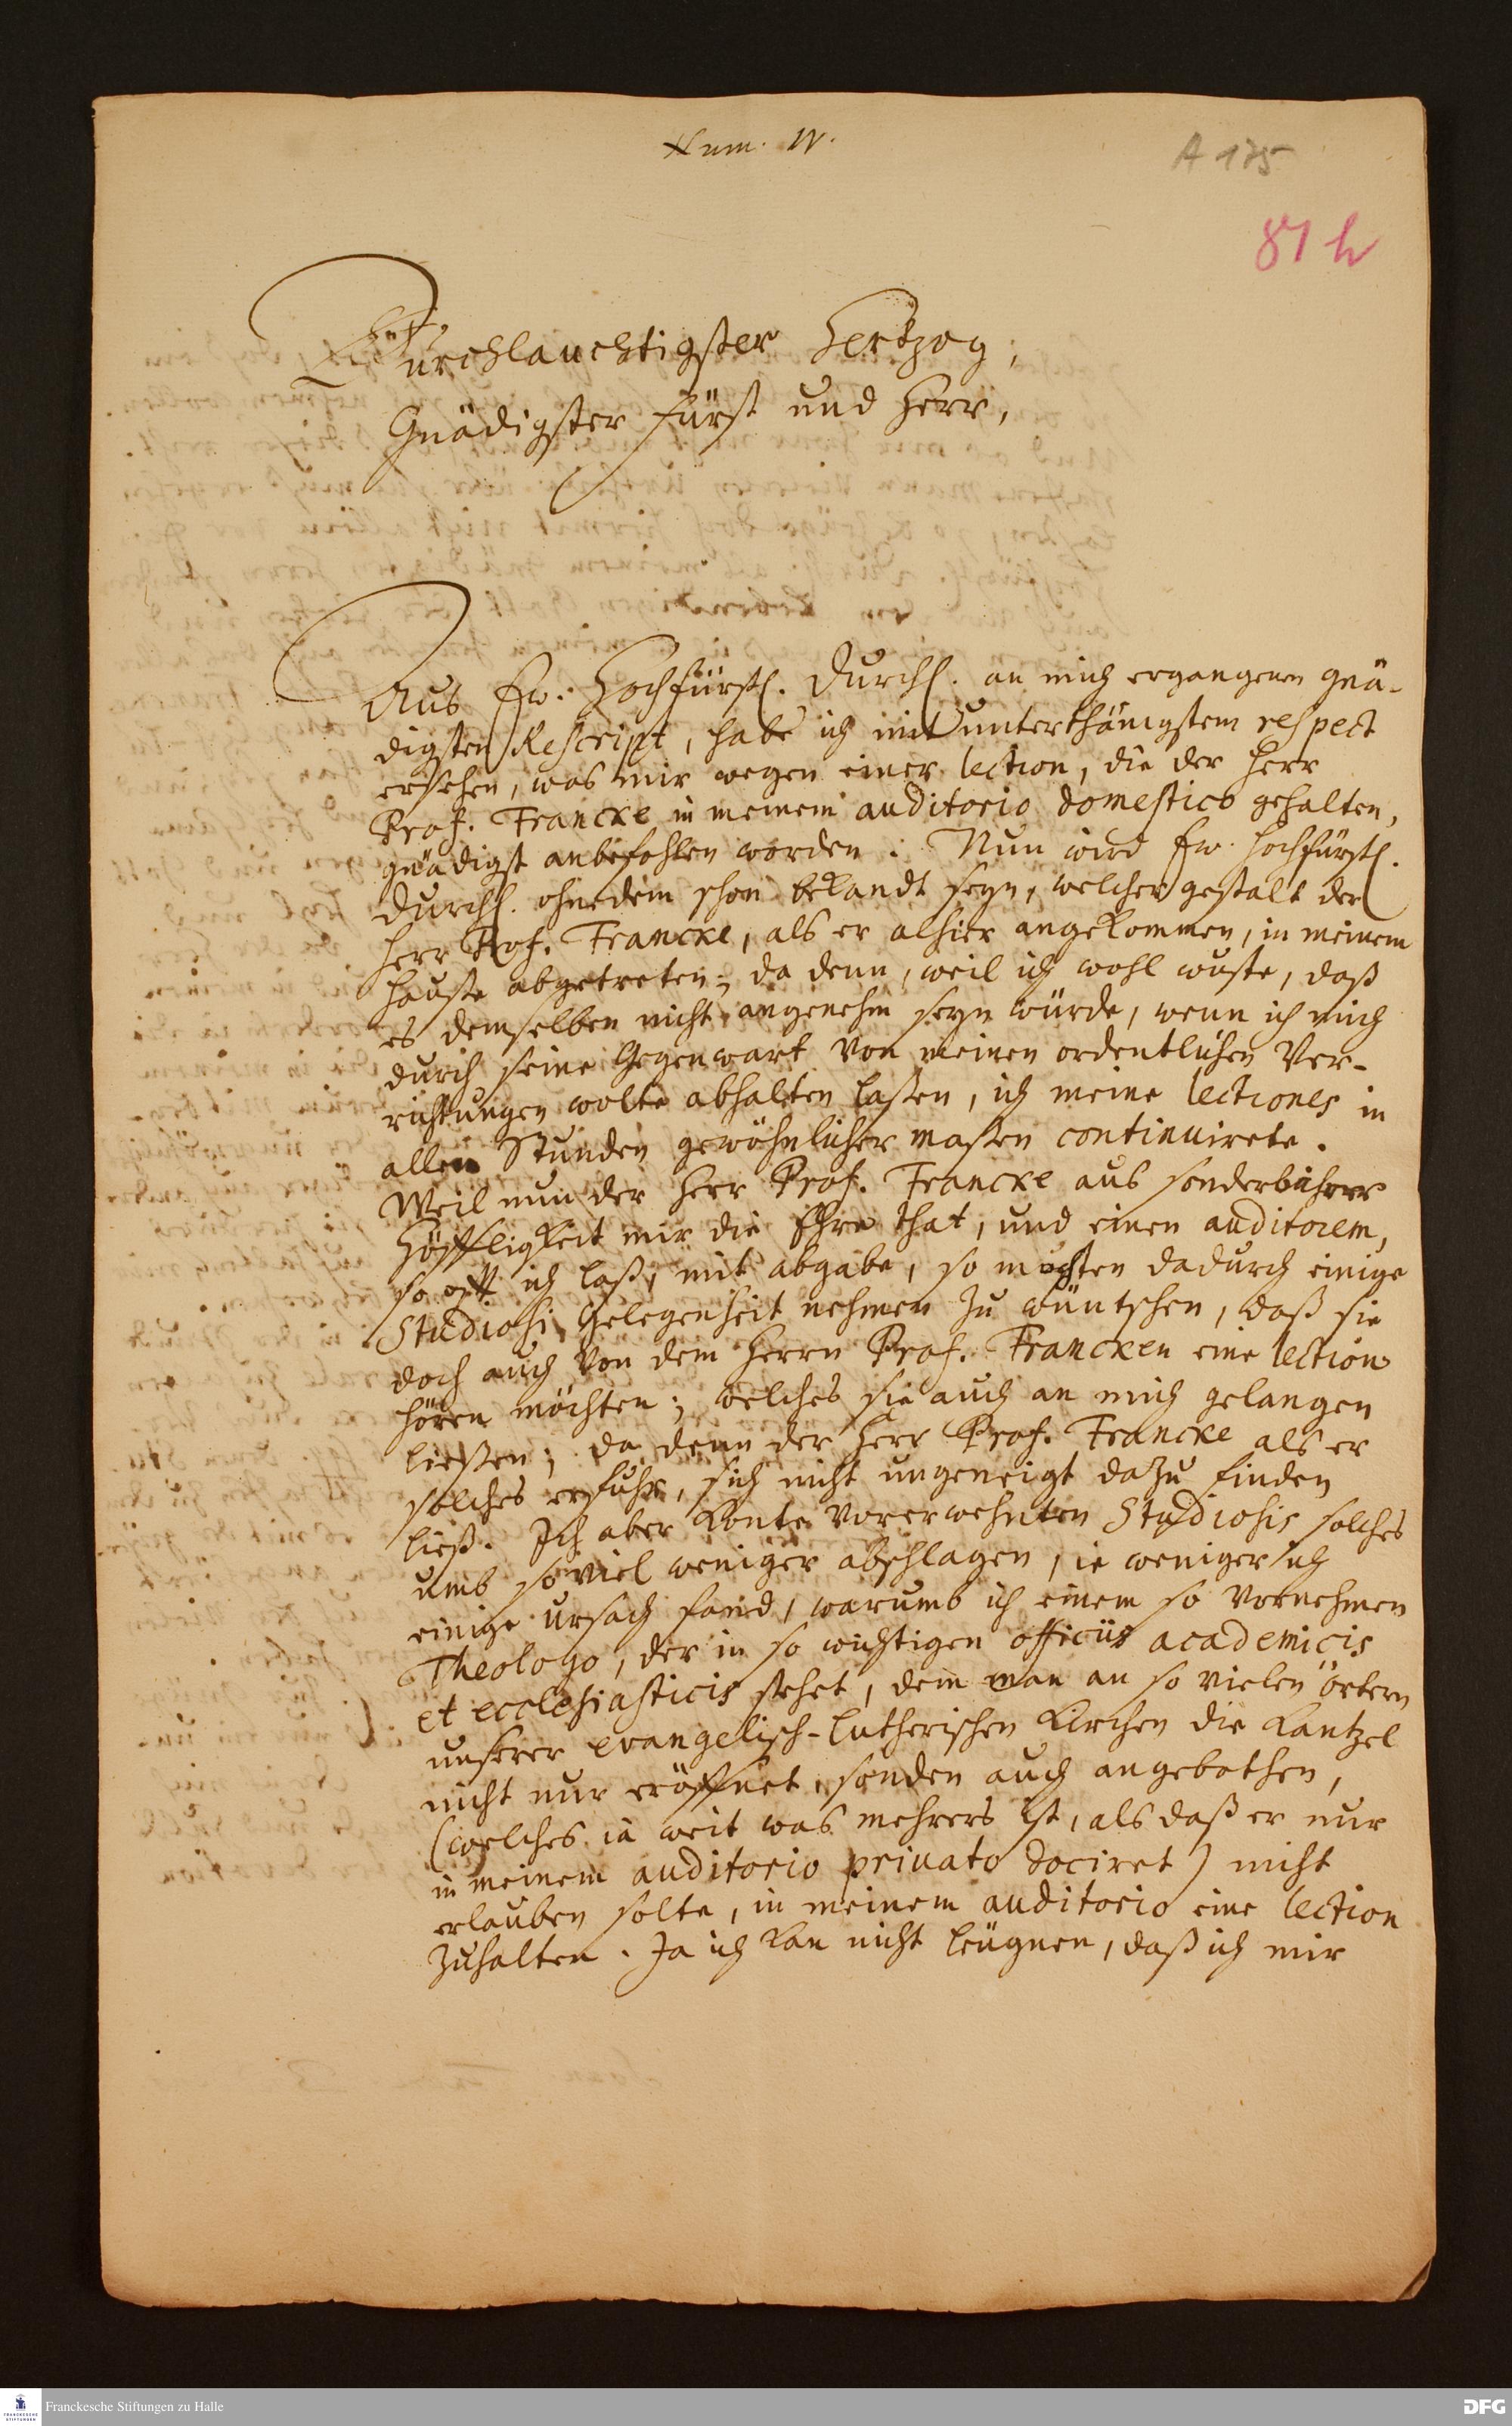 Num. IV.
A 175
87 h
Durchlauchtigster Hertzog,
Gnädigster Fürst und Herr,
Aus Ew. Hochfürstl. Durchl. an mich ergangenen gnä-
digsten Rescript, habe ich mit unterthänigstem respect
ersehen, was mir wegen einer lection, die der Herr
Prof. Francke in meinem auditorio domestico gehalten,
gnädigst anbefohlen worden. Nun wird Ew. Hochfürstl.
Durchl. ohnedem schon bekandt seyn, welcher gestalt der
Herr Prof. Francke, als er alhier angekommen, in meinem
Hause abgetreten; da denn, weil ich wohl wuste, daß
es demselben nicht angenehm seyn würde, wenn ich mich
durch seine Gegenwart von meinen ordentlichen Ver-
richtungen wolte abhalten laßen, ich meine lectiones in
allen Stunden gewöhnlicher maßen continuirete.
Weil nun der Herr Prof. Francke aus sonderbahrer
Höffligkeit mir die Ehre that, und einen auditorem,
so offt ich laß, mit abgabe, so mochten dadurch einige
Studiosi Gelegenheit nehmen zu wüntschen, daß sie
doch auch von dem Herrn Prof. Francken eine lection
hören möchten; welches sie auch an mich gelangen
ließen; da denn der Herr Prof. Francke als er
solches erfuhr, sich nicht ungeneigt dazu finden
ließ. Ich aber konte vorerwehnten Studiosis solches
umb soviel weniger abschlagen, ie weniger ich
einige ursach fand, warumb ich einem so vornehmen
Theologo, der in so wichtigen officiis academicis
et ecclesiasticis stehet, dem man an so vielen örtern
unserer evangelisch-lutherischen Kirchen die Kantzel
nicht nur eröffnet, sonden auch angebothen,
(welches ia weit was mehrers ist, als daß er nur
in meinem auditorio privato dociret) nicht
erlauben solte, in meinem auditorio eine lection
zuhalten. Ja ich kan nicht leügnen, daß ich mir
Franckesche Stiftungen zu Halle
DFG